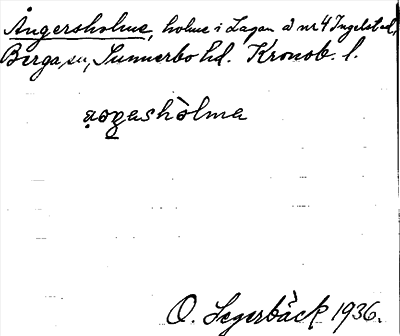 Ångersholme, holme i Lagan å nr 4 Ingelstad,
Berga sn, Sunnerbo hd. Kronob. l.
aogashòlma
O. Segerbäck 1936.